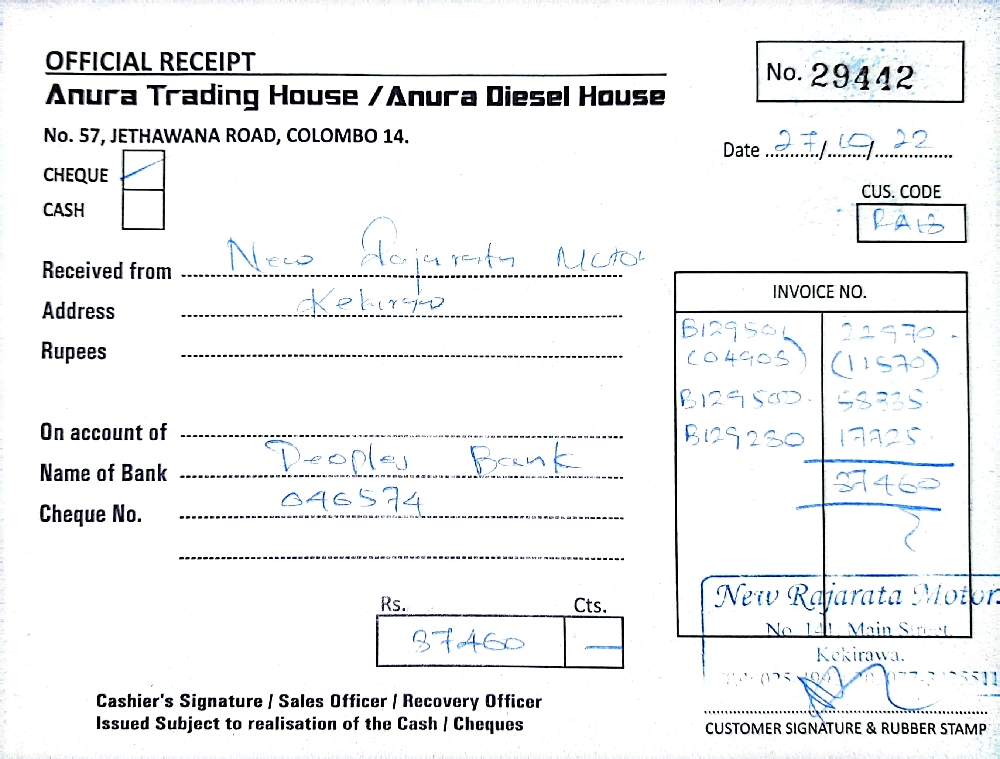 OFFICIAL RECEIPT
Anura Trading House / Anura Diesel House
No. 57, JETHAWANA ROAD, COLOMBO 14.
No. 29442
Date 27/10/22
CHEQUE
CASH
CUS. CODE
Received from New Rajarata Motor
Address Kekirawa
Rupees
On account of
Name of Bank Peoples Bank
Cheque No. 046574
Rs. Cts.
87460 —
INVOICE NO.
B129501 22970
(04905) (11570)
B129500 58335
B129280 17725
87460
New Rajarata Motors
No. 141, Main Street,
Kekirawa.
Cashier's Signature / Sales Officer / Recovery Officer
Issued Subject to realisation of the Cash / Cheques
CUSTOMER SIGNATURE & RUBBER STAMP